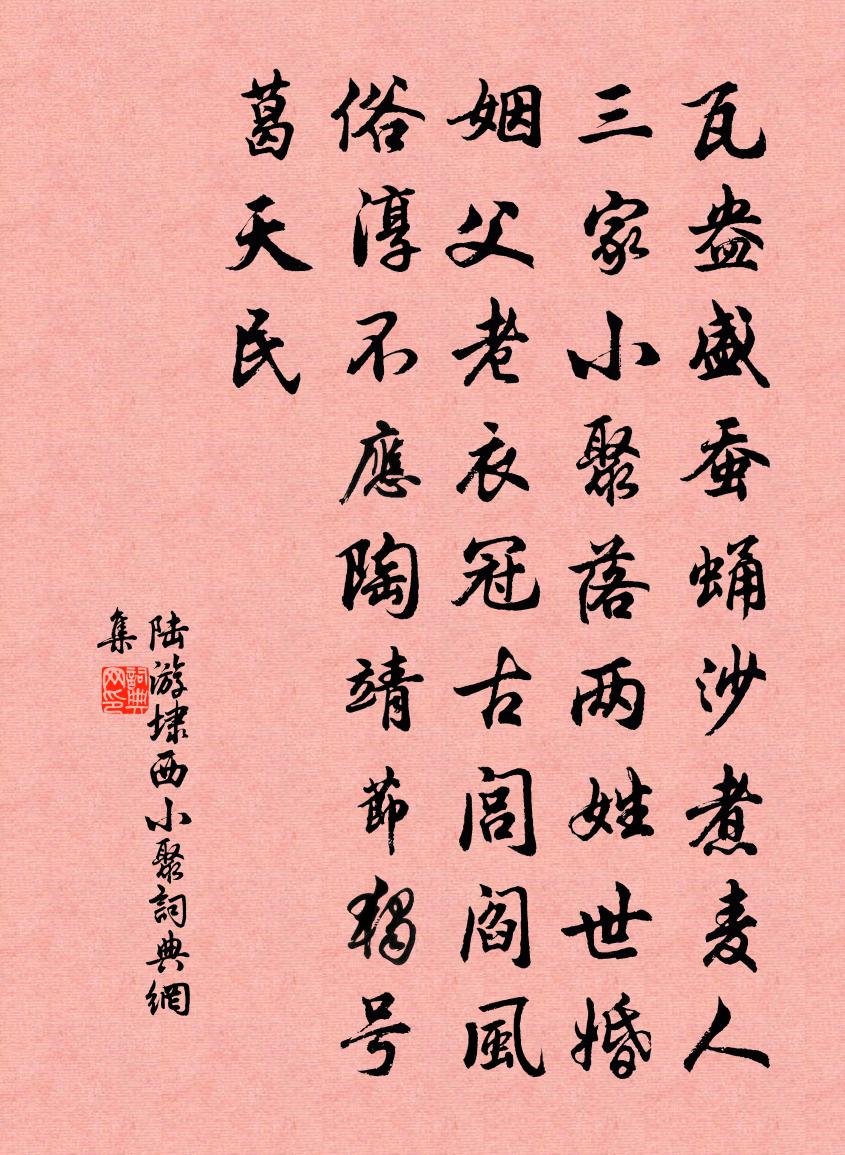 瓦盎盛蚕蛹沙煮麦人
三家小聚落两姓世婚
姻父老衣冠古闾阎風
俗淳不應陶靖節獨号
葛天民
陆游埭西小聚詞典網
集
詞典网印